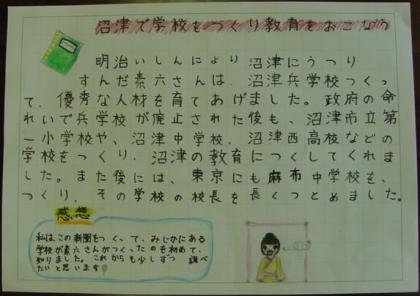 沼津で学校をつくり教育をおこなう
明治いしんにより沼津にうつり
すんだ素六さんは、沼津兵学校つくっ
て、優秀な人材を育てあげました。政府の命
れいで兵学校が廃止された後も、沼津市立第
一小学校や、沼津中学校、沼津西高校などの
学校をつくり、沼津の教育につくしてくれま
した。また後には、東京にも麻布中学校を、
つくり、その学校の校長を長くつとめました。
感想
私はこの新聞をつくって、みじかにある
学校が素六さんがつくったのを初めて、
知りました。これからも少しずつ調べ
たいと思います